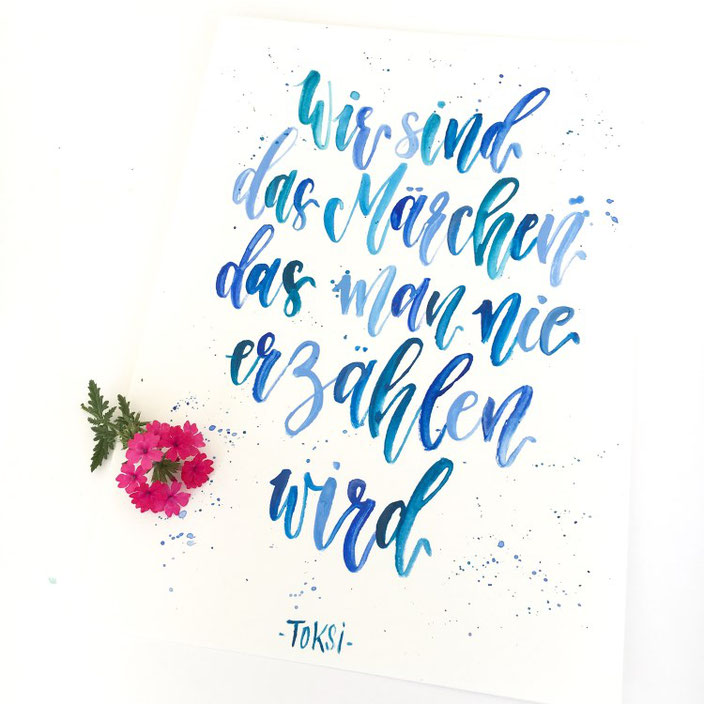 Wir sind
das Märchen
das man nie
erzählen
wird
-TOKSi-